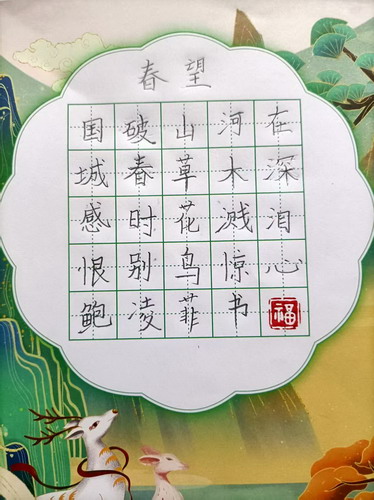 春望
国破山河在
城春草木深
感时花溅泪
恨别鸟惊心
鲍凌菲书福